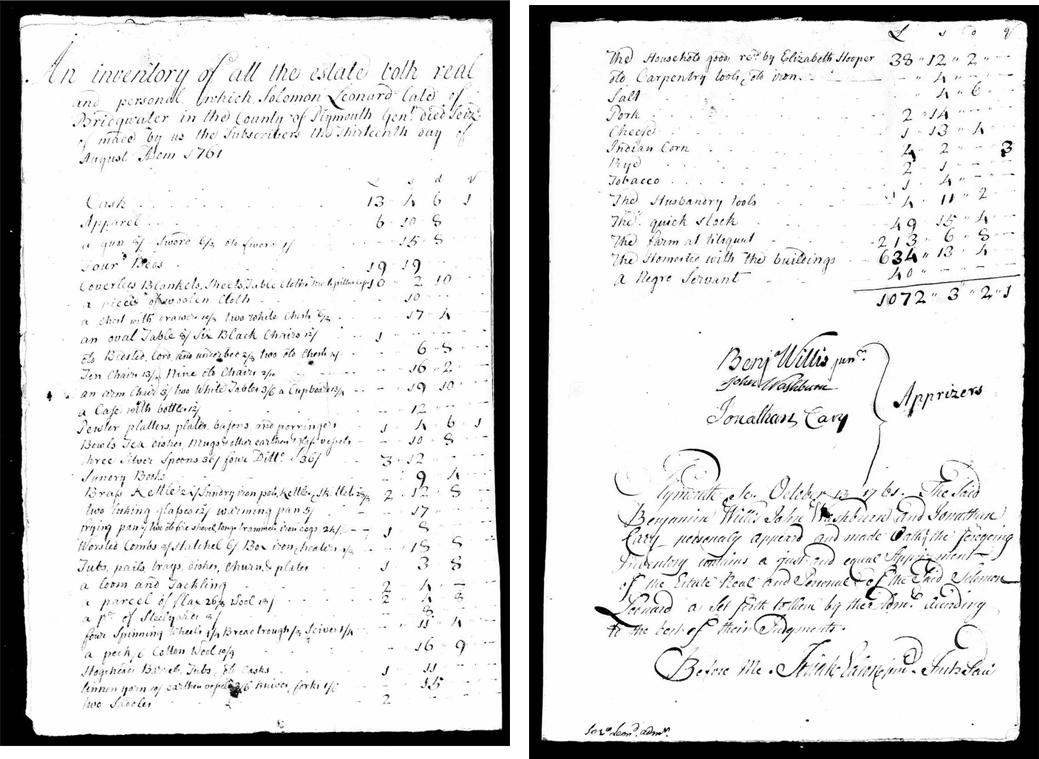 An inventory of all the estate both real
and personal which Solomon Leonard late of
Bridgwater in the County of Plymouth Genᵗ died seiz
of made by us the Subscribers the thirteenth day of
August 1761
£ s d q
Cash 13 4 6 1
Apparel 6 10 8
a gun Sword old sword 15 8
Four Beds 19 19
Coverlets Blankets, Sheets, Table Cloths 10 2 10
a piece of woolen cloth 10
a chest with drawers two white Chests 17 4
an oval Table Six Black Chairs 1
old Bedsted, Cord, and underbed two old Chests 6 8
Ten Chairs Nine old Chairs 16 2
an arm Chair two White Tables 3/6 a Cupboard 19 10
a Case with bottles 12
Pewter platters, plates, basons and porringers 1 4 6 1
Bowls Tea dishes, Mugs & other earthen vessels 10 8
three Silver Spoons 36/ four Dittᵒ 36/ 3 12
Sundry Books 9 4
Brass Kettle Sundry iron pots, Kettles, Skillets 2 12 8
two looking glasses warming pan 5/ 17
frying pan two old fire shovel, tongs trammer iron dogs 24/ 1 8
Worsted Combs Hatchel 6/ Box iron, heaters 18 8
Tubs, pails, trays, dishes, churn, & plates 1 3 8
a loom and Tackling 2 4
a parcel of flax 26/ Wool 2 4 8
a pʳ of Steelyards 8/ 8
four Spinning Wheels Bread trough Seives 11 4
a peck, Cotton Wool 16 9
Hogsheads Barrels, Tubs, old Casks 1 11
linnen yarn earthen vessels knives, forks 1/6 15
two Saddles 2
2
£ s d q
The Household good recᵈ by Elizabeth Hooper 38 12 2
old Carpentry tools, old iron 4
Salt 4 6
Pork 2 14
Cheese 1 13 4
Indian Corn 4 2 3
Rye 2 1
Tobacco 1 4
The Husbandry tools 4 11 2
The quick stock 49 15 4
The farm at titiquut 213 6 8
The Homested with the buildings 634 13 4
a Negro Servant 40
1072 3 2 1
Benjᵃ Willis junʳ
John Washburn
Jonathan Cary
Apprizers
Plymouth sc. October 13 1761. The said
Benjamin Willis John Washburn and Jonathan
Cary personaly appeard and made Oath, the foregoing
Inventory contains a just and equal Apprizement
of the Estate Real and Personal of the Said Solomon
Leonard as Set forth to them by the Admʳ according
to the best of their Judgments.
Before Me